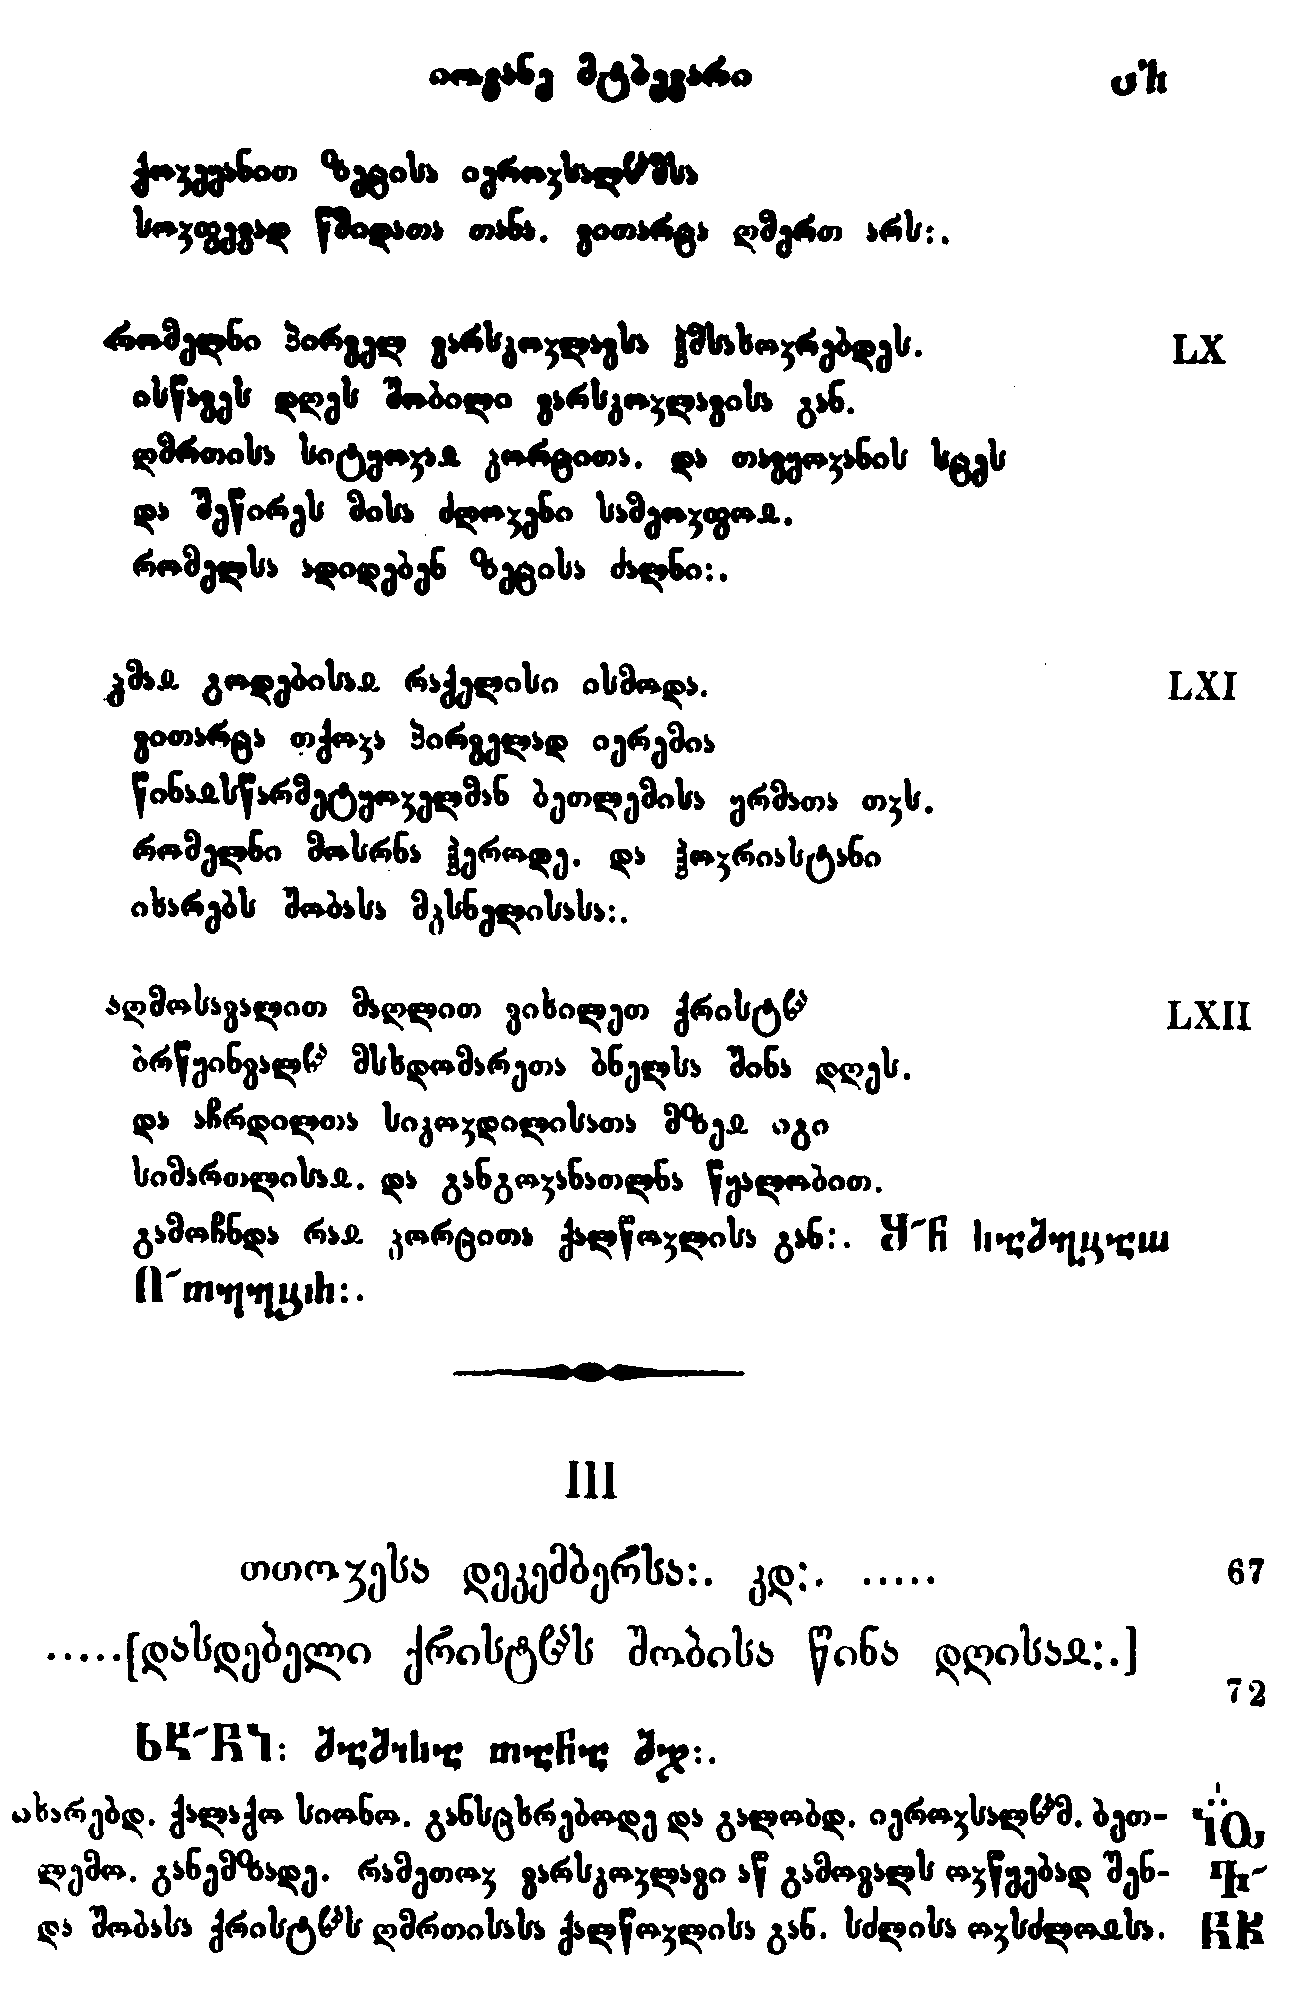 იოვანე მტბევარი
ქოჳეყანით ზეცისა იეროჳსალჱმსა
სოჳფევად წმიდათა თანა. ვითარცა ღმერთ არს:.
რომელნი პირველ ვარსკოჳლავსა ჰმსახოჳრებდეს. LX
ისწავეს დღეს შობილი ვარსკოჳლავისა გან.
ღმრთისა სიტყოჳაჲ ჴორცითა. და თაყოჳანის სცეს
და შეწირეს მისა ძღოჳენი სამეოჳფოჲ.
რომელსა ადიდებენ ზეცისა ძალნი:.
ჴმაჲ გოდებისაჲ რაქელისი ისმოდა. LXI
ვითარცა თქოჳა პირველად იერემია
წინაჲსწარმეტყოჳელმან ბეთლემისა ყრმათა თჳს.
რომელნი მოსრნა ჰეროდე. და ჰოჳრიასტანი
იხარებს შობასა მჴსნელისასა:.
აღმოსავალით მაღლით ვიხილეთ ქრისტჱ LXII
ბრწყინვალჱ მსხდომარეთა ბნელსა შინა დღეს.
და აჩრდილთა სიკოჳდილისათა მზეჲ იგი
სიმართლისაჲ. და განგოჳანათლნა წყალობით.
გამოჩნდა რაჲ ჴორცითა ქალწოჳლისა გან:.
III
თთოჳესა დეკემბერსა:. კდ:. ..... 67
.....[დასდებელი ქრისტჱს შობისა წინა დღისაჲ:.]
72
ახარებდ. ქალაქო სიონო. განსცხრებოდე და გალობდ. იეროჳსალჱმ. ბეთ-
ლემო. განემზადე. რამეთოჳ ვარსკოჳლავი აწ გამოვალს ოჳწყებად შენ-
და შობასა ქრისტჱს ღმრთისასა ქალწოჳლისა გან. სძლისა ოჳსძლოჲსა.